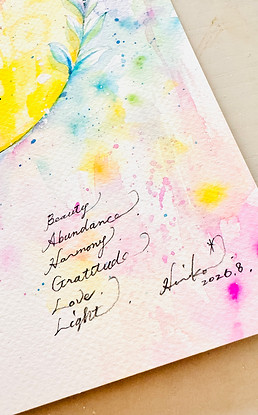 Beauty
Abundance
Harmony
Gratitude
Love.
Light.
Hiroko
2026.8.